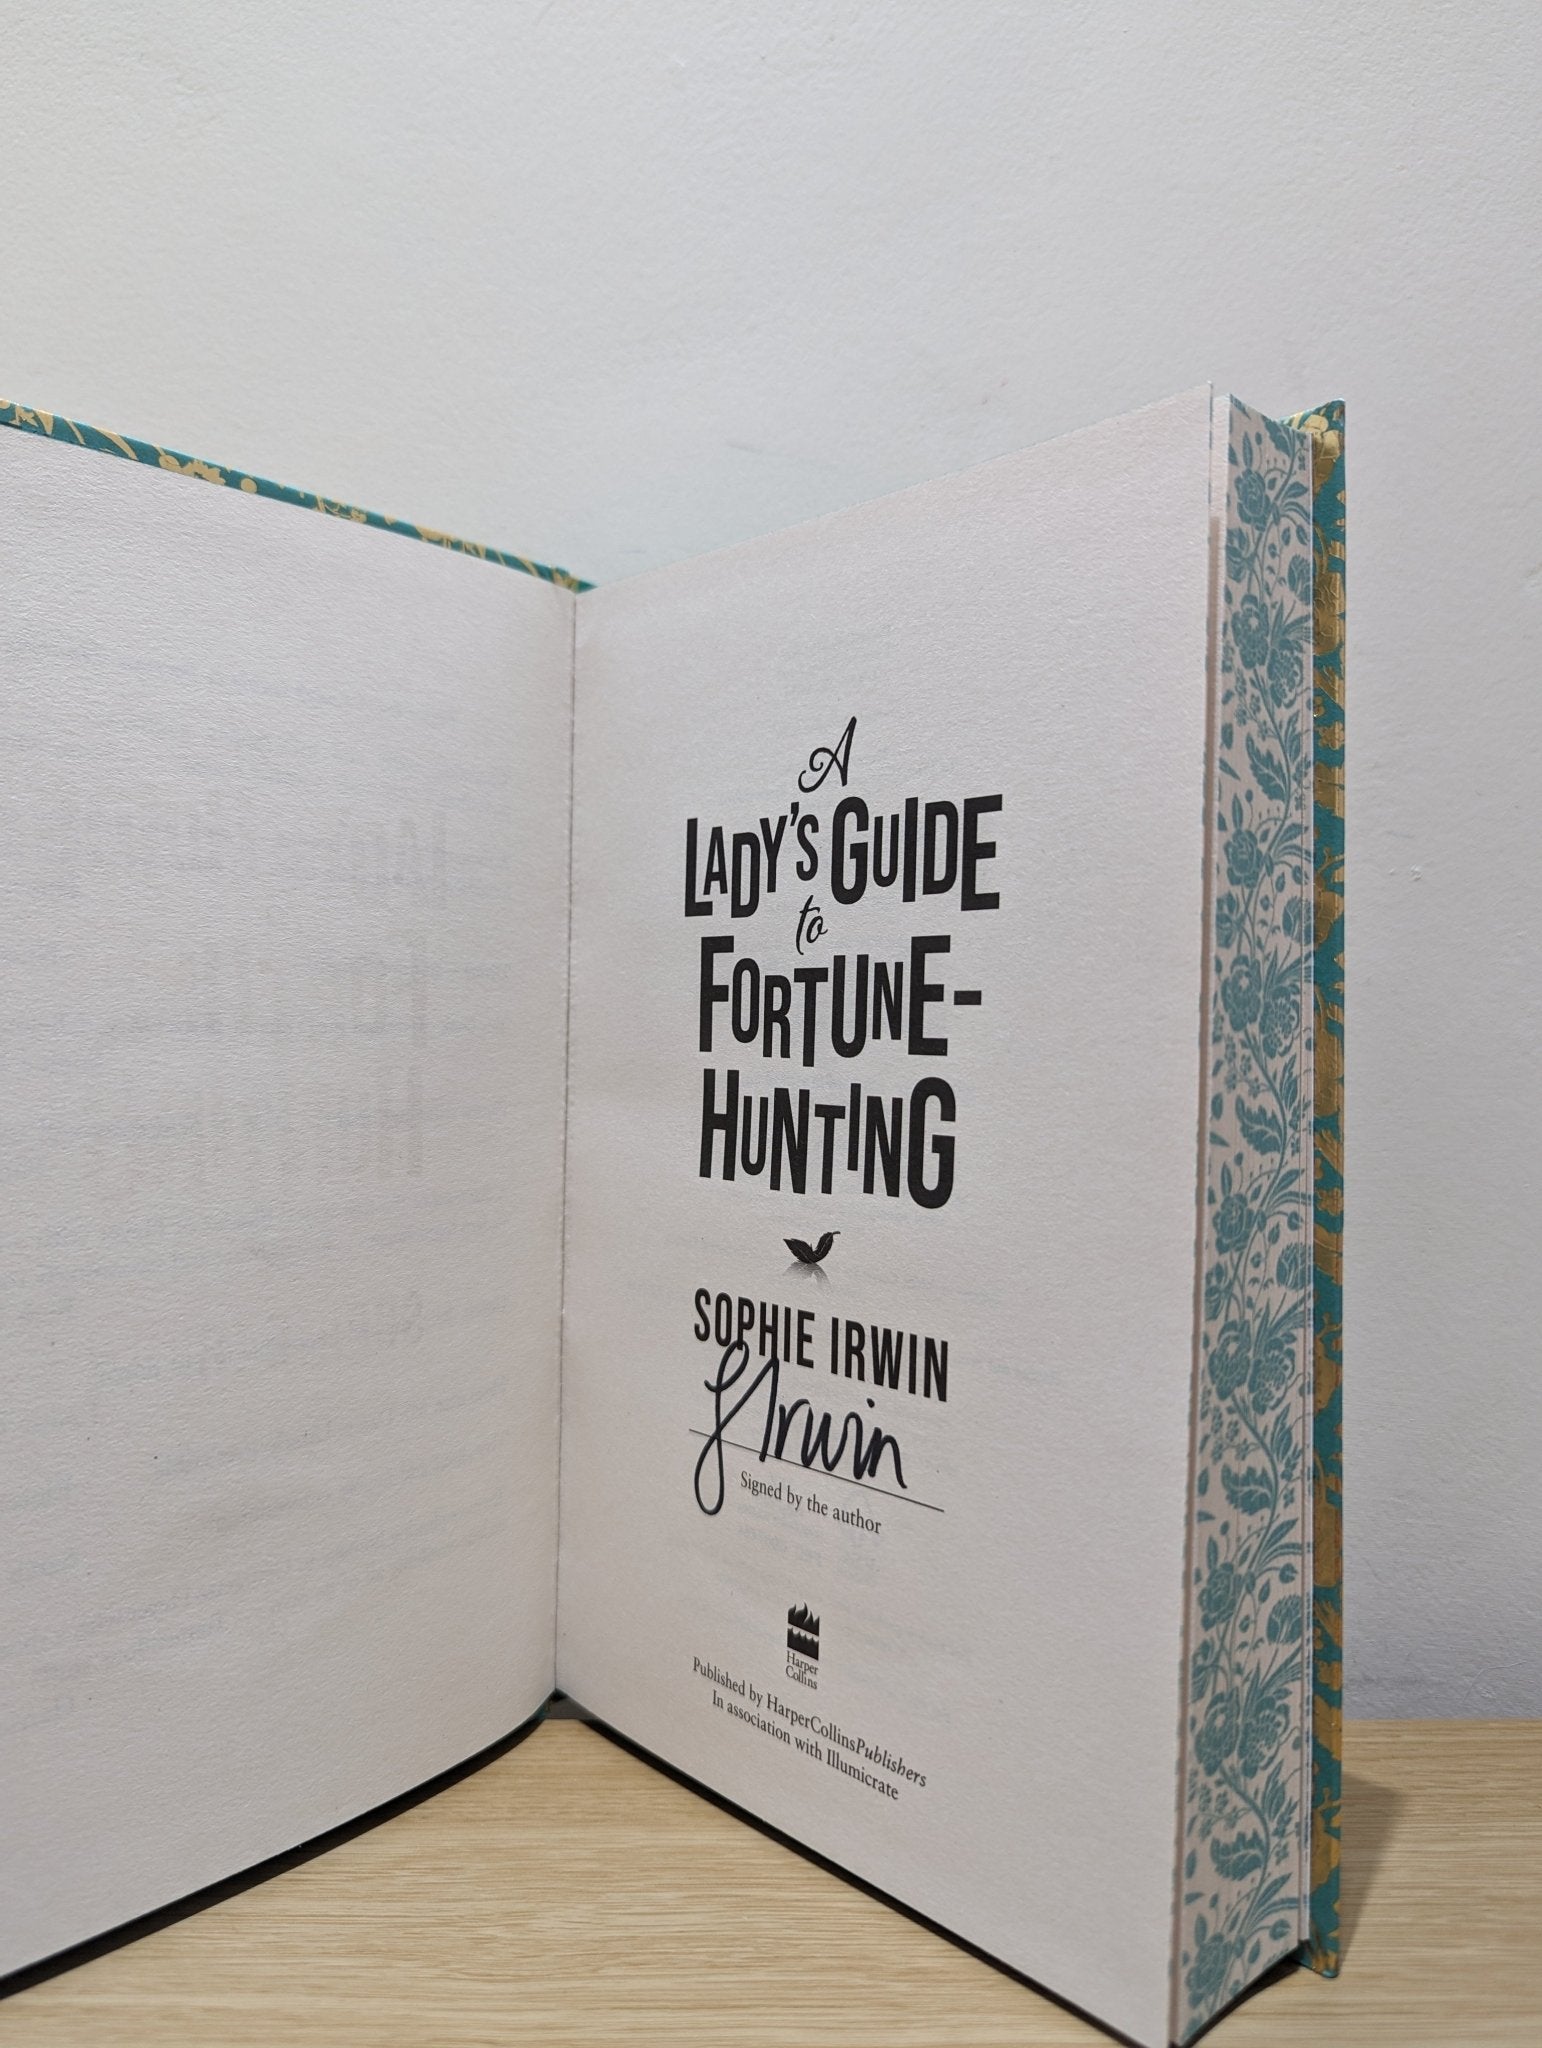 A
LADY'S GUIDE
to
FORTUNE-
HUNTING
SOPHIE IRWIN
S Irwin
Signed by the author
Harper
Collins
Published by HarperCollinsPublishers
In association with Illumicrate